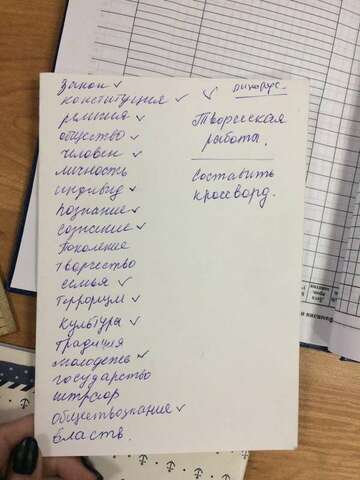 закон ✓
конституция ✓
религия ✓
общество ✓
человек ✓
личность
индивид ✓
познание ✓
сознание ✓
Поколение
творчество
семья ✓
терроризм ✓
культура ✓
традиция
молодежь ✓
государство
обществознание ✓
власть.
✓
Творческая
работа.
Составить
кроссворд.